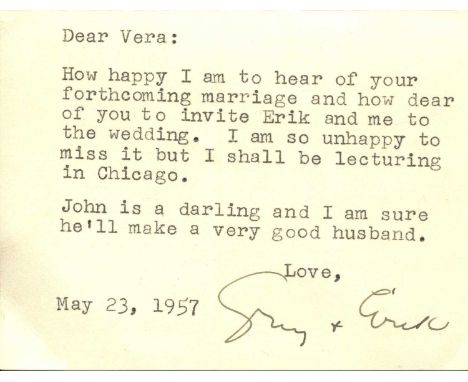 Dear Vera:
How happy I am to hear of your
forthcoming marriage and how dear
of you to invite Erik and me to
the wedding.  I am so unhappy to
miss it but I shall be lecturing
in Chicago.
John is a darling and I am sure
he'll make a very good husband.
Love,
May 23, 1957
+ Erik